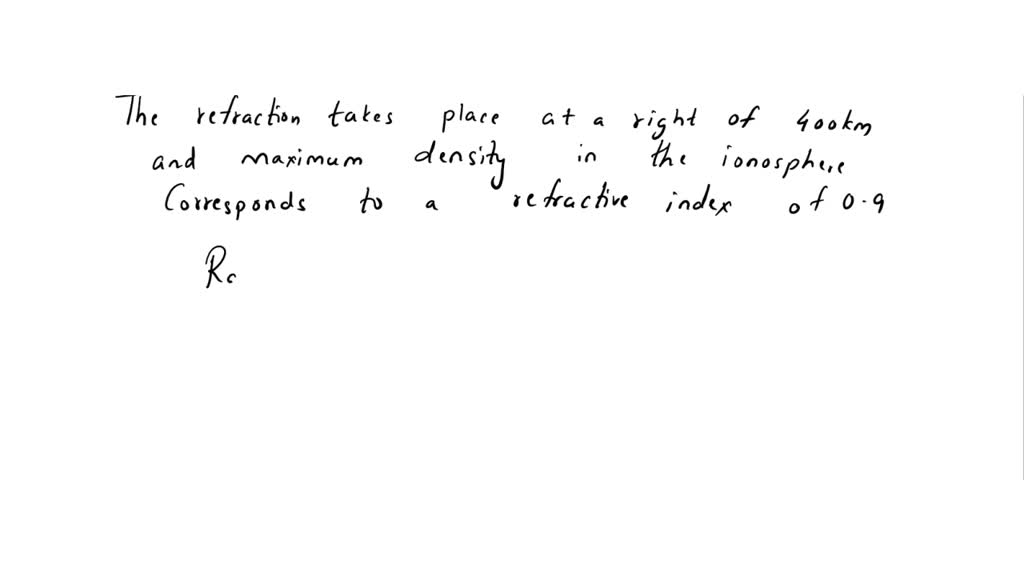 The refraction takes place at a right of 400km
and maximum density in the ionosphere
Corresponds to a refractive index of 0.9
Rc